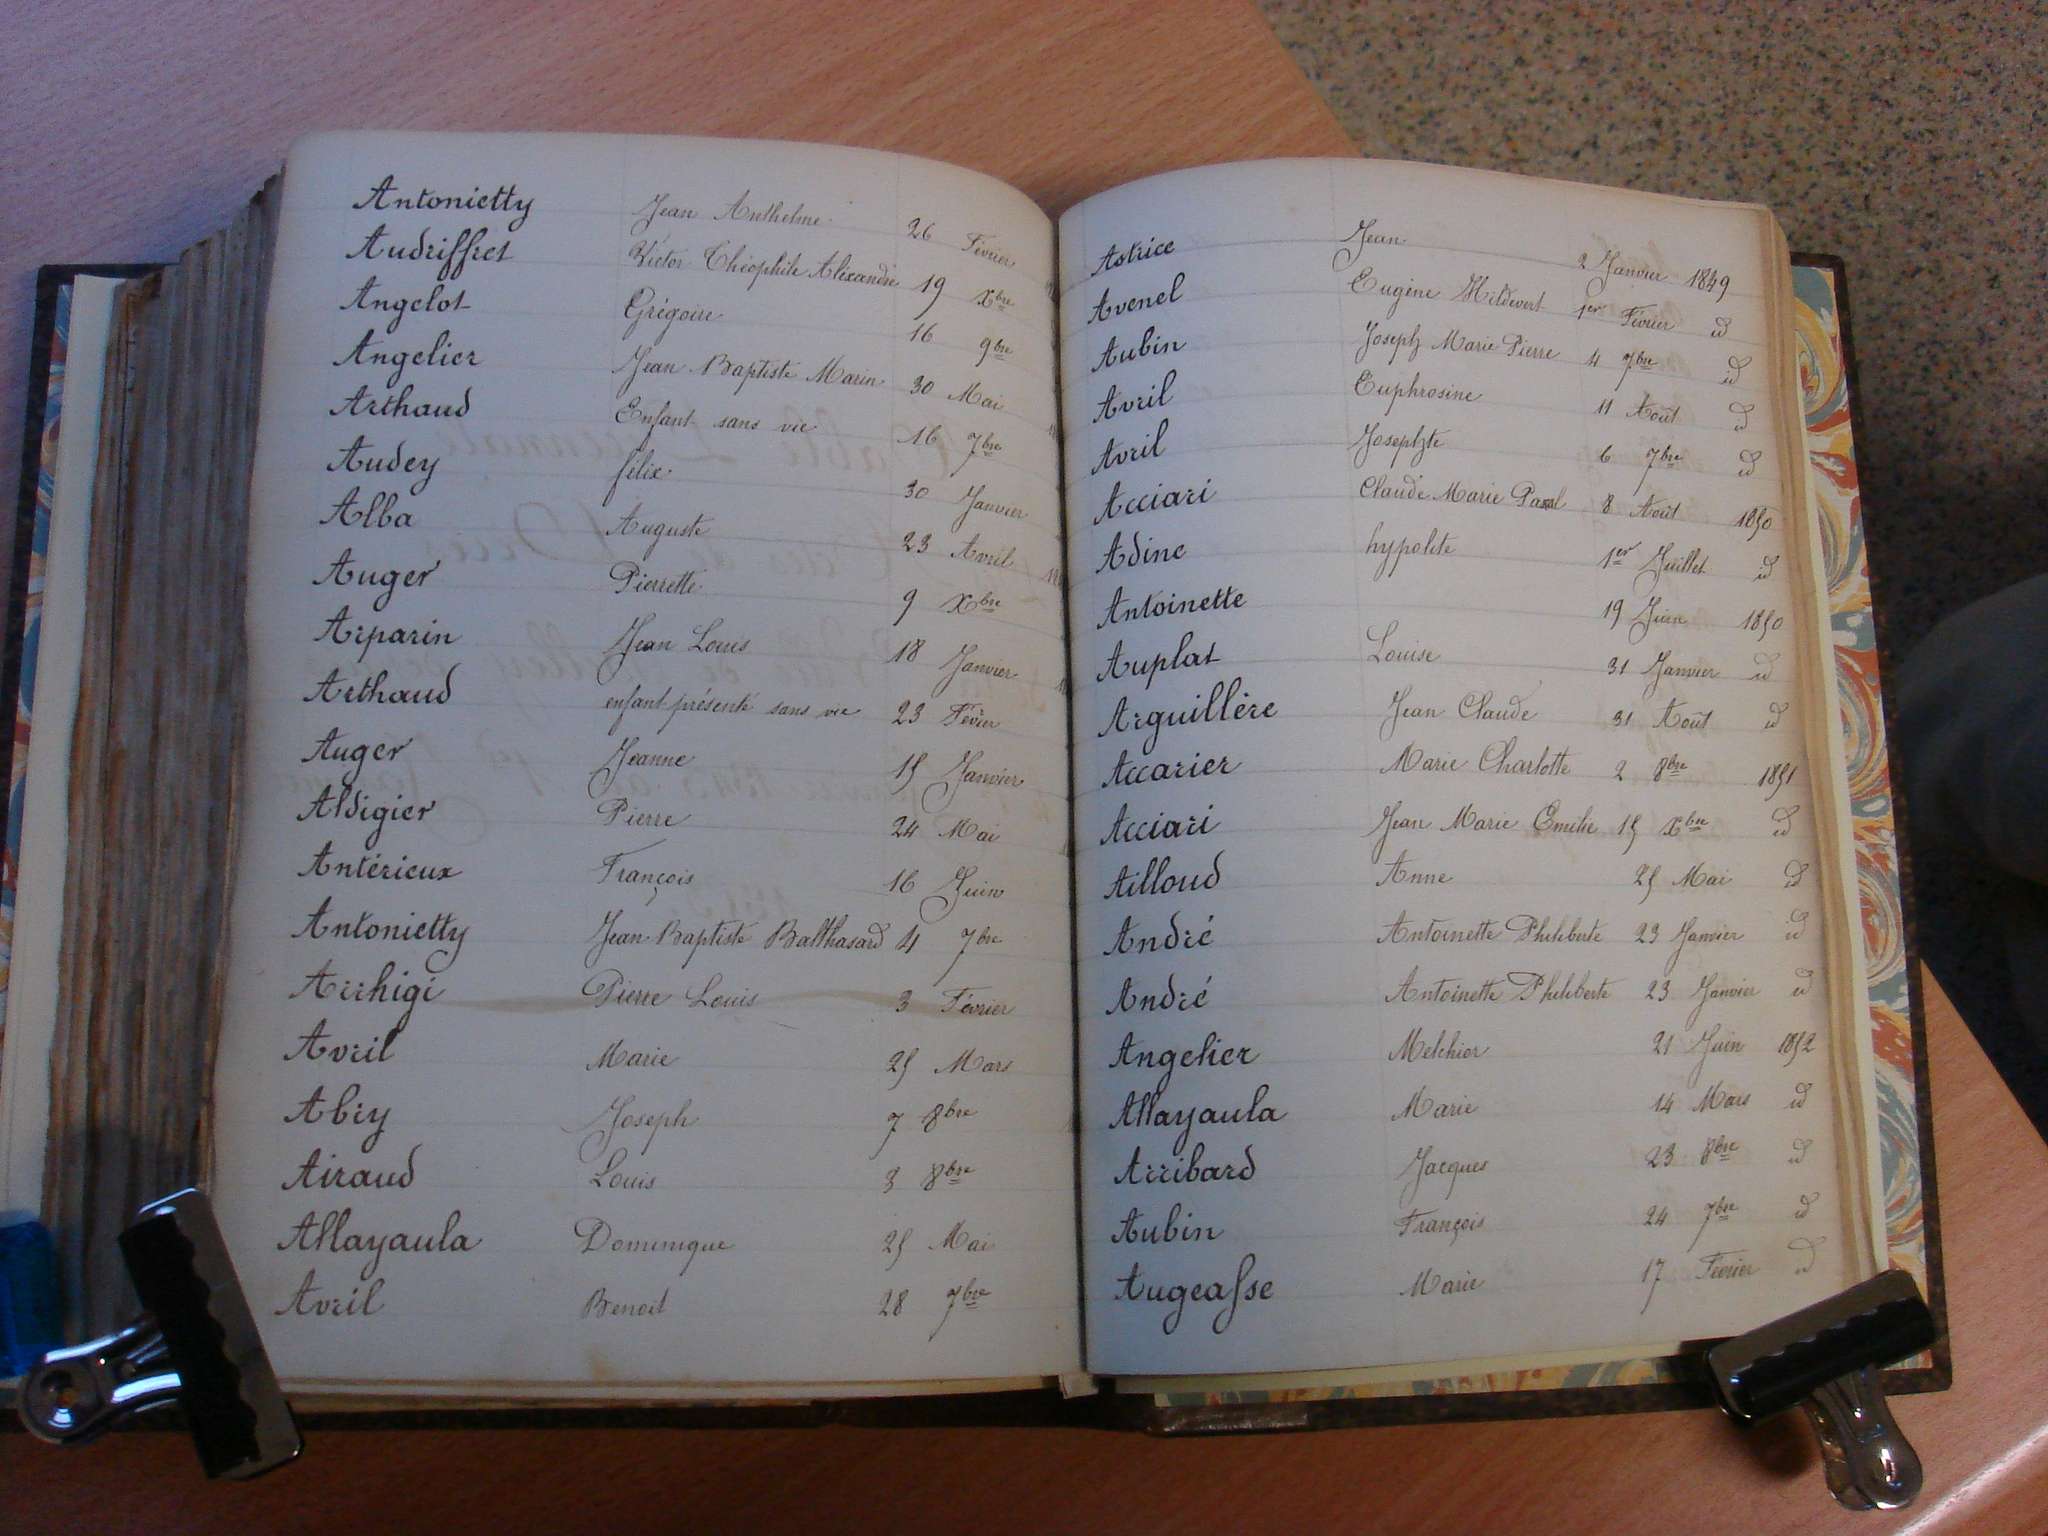 Antonietty Jean Anthelme 26 Février
Audriffret Victor Théophile Aléxandre 19 Xbre
Angelot Grégoire 16 9bre
Angelier Jean Baptiste Marin 30 Mai
Arthaud Enfant sans vie 16 7bre
Audey félix 30 Janvier
Alba Auguste 23 Avril
Auger Pierrette 9 Xbre
Arparin Jean Louis 18 Janvier
Arthaud enfant présenté sans vie 23 Févier
Auger Jeanne 15 Janvier
Aldigier Pierre 24 Mai
Antérieux François 16 Juin
Antonietty Jean Baptiste Balthasard 4 7bre
Arrhigi Pierre Louis 3 Février
Avril Marie 25 Mars
Abry Joseph 7 8bre
Airaud Louis 3 8bre
Allayaula Dominique 25 Mai
Avril Benoit 28 7bre
Astrice Jean 2 Janvier 1849
Avenel Eugène 1er Février id
Aubin Joseph Marie Pierre 4 7bre id
Avril Euphrosine 11 Août id
Avril Josephte 6 7bre id
Acciari Claude Marie Pascal 8 Août 1850
Adine hypolite 1er Juillet id
Antoinette 19 Juin 1850
Auplat Louise 31 Janvier id
Arguillère Jean Claude 31 Août id
Accarier Marie Charlotte 2 8bre 1851
Acciari Jean Marie Emilie 15 Xbre id
Ailloud Anne 25 Mai id
André Antoinette Philiberte 23 Janvier id
André Antoinette Philiberte 23 Janvier id
Angelier Melchior 21 Juin 1852
Allayaula Marie 14 Mars id
Arribard Jacques 23 8bre id
Aubin François 24 7bre id
Augeasse Marie 17 Février id